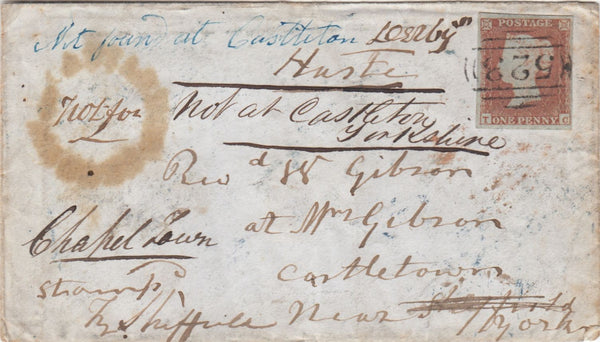 Not found at Castleton Derbys
POSTAGE
Haste
528
Not for
Not at Castleton
Yorkshire
T ONE PENNY C
Revd W Gibson
Chapel Town
at Mrs Gibson
Castletown
stampd
Near Sheffield
By Sheffield
York